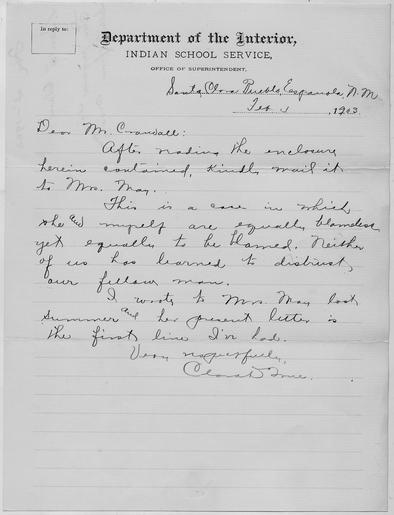 In reply to:
Department of the Interior,
INDIAN SCHOOL SERVICE,
OFFICE OF SUPERINTENDENT.
Santa Clara Pueblo, Espanola, N.M.
Feb. 4, 1903.
Dear Mr. Crandall:
After reading the enclosure
herein contained, kindly mail it
to Mrs. May.
This is a case in which
she and myself are equally blameless
yet equally to be blamed. Neither
of us has learned to distrust
our fellow man.
I wrote to Mrs. May last
summer and her present letter is
the first line I've had.
Very respectfully,
Clara D. True.